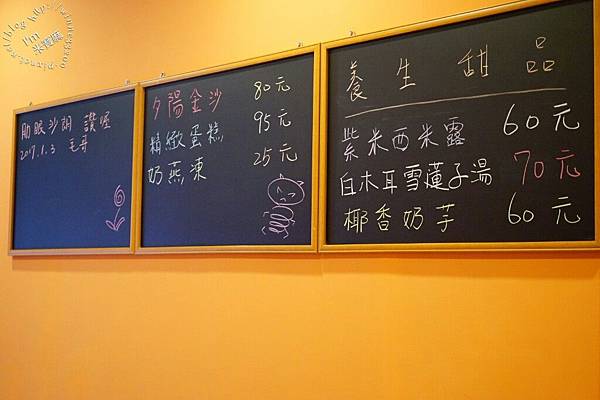 助眠沙朗 讚喔
2017.1.3 毛哥
夕陽金沙 80元
精緻蛋糕 95元
奶燕凍 25元
養生甜品
紫米西米露 60元
白木耳雪蓮子湯 70元
椰香奶芋 60元
I'm
米寶麻